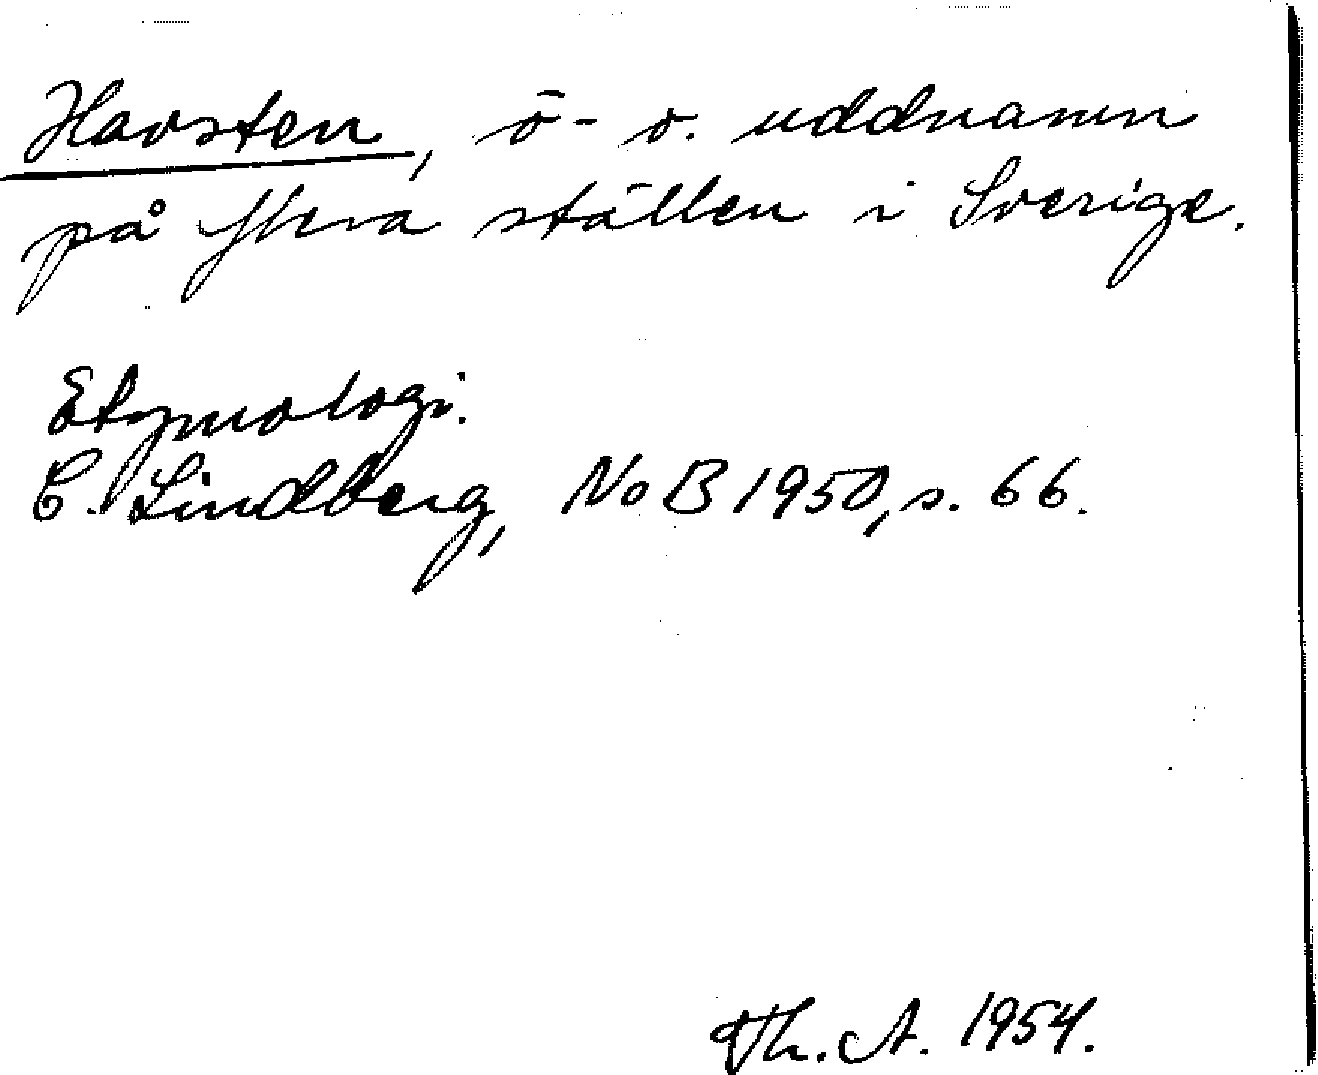 Havsten, ö- o. uddnamn
på flera ställen i Sverige.
Etymologi.
C. Lindberg, NoB 1950, s. 66.
Th. A. 1954.